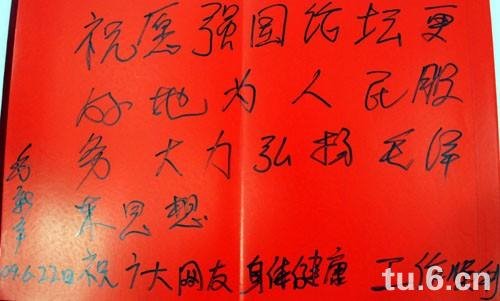 祝愿强国论坛更
好地为人民服
务大力弘扬毛泽
东思想
祝广大网友身体健康 工作顺利
毛新宇
09.6.22日
tu.6.cn